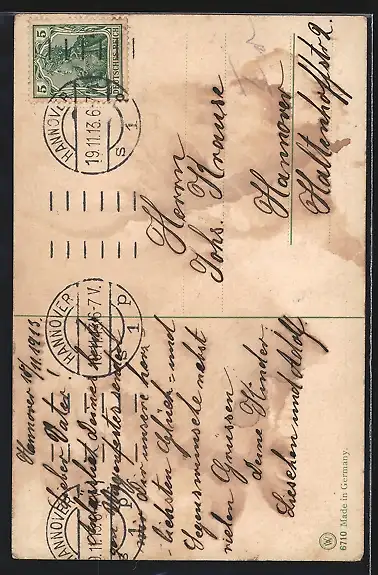 5 5
DEUTSCHES REICH
HANNOVER
19.11.13.6-7 V.
S 1 p
HANNOVER
6-7 V.
S 1 p
HANNOVER
Herrn
Johs. Krause
Hannover
Haltenhoffstr 2.
Hannover 18/11. 1913.
Lieber Vater!
Anlässlich Deines heutigen
Wiegenfestes senden
wir Dir unsere herz-
lichsten Glück- und
Segenswünsche nebst
vielen Grüssen.
Deine Kinder
Lieschen und Adolf
6710 Made in Germany.